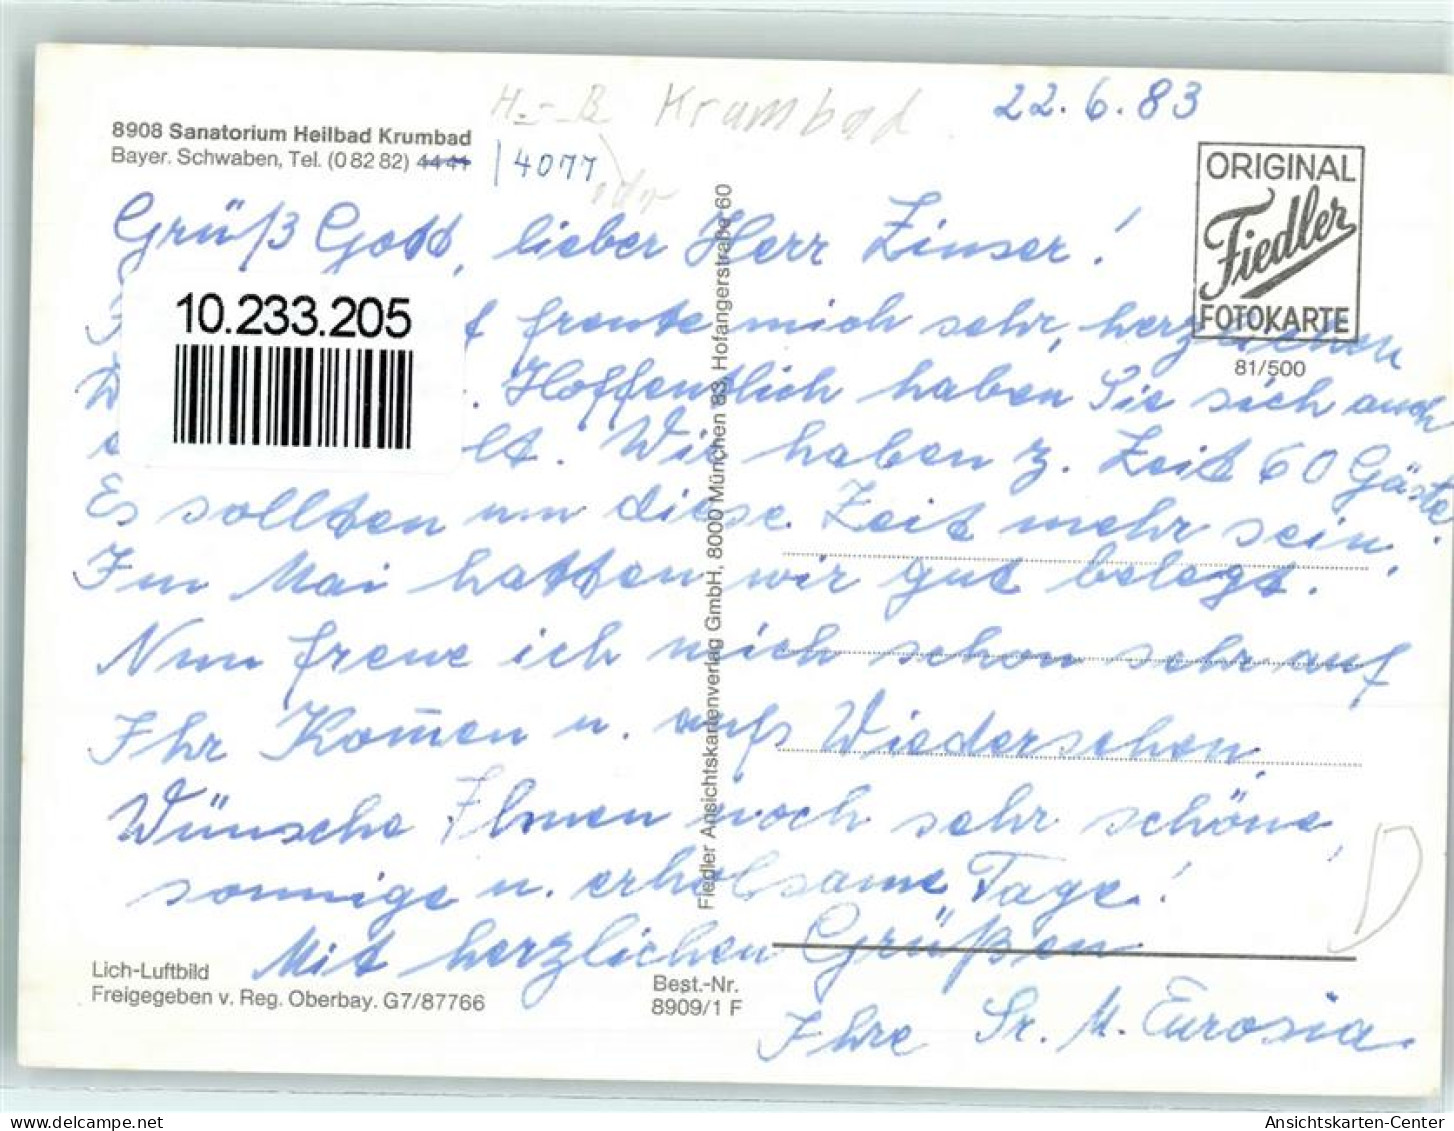 H.-B Krumbad 22.6.83
8908 Sanatorium Heilbad Krumbad
Bayer. Schwaben, Tel. (0 82 82) 4441 / 4077
oder
ORIGINAL
Fiedler
FOTOKARTE
81/500
Grüß Gott, lieber Herr Zinser!
10.233.205
freute mich sehr, herzlichen
Hoffentlich haben Sie sich auch
Wir haben z. Zeit 60 Gäste.
Es sollten um diese Zeit mehr sein.
Im Mai hatten wir gut belegt.
Nun freue ich mich schon sehr auf
Ihr Kom̅en u. aufs Wiedersehen.
Wünsche Ihnen noch sehr schöne,
sonnige u. erholsame Tage!
Mit herzlichen Grüßen
Ihre Sr. M. Eurosia.
D
Fiedler Ansichtskartenverlag GmbH, 8000 München 83, Hofangerstraße 60
Lich-Luftbild
Freigegeben v. Reg. Oberbay. G7/87766
Best.-Nr.
8909/1 F
Ansichtskarten-Center